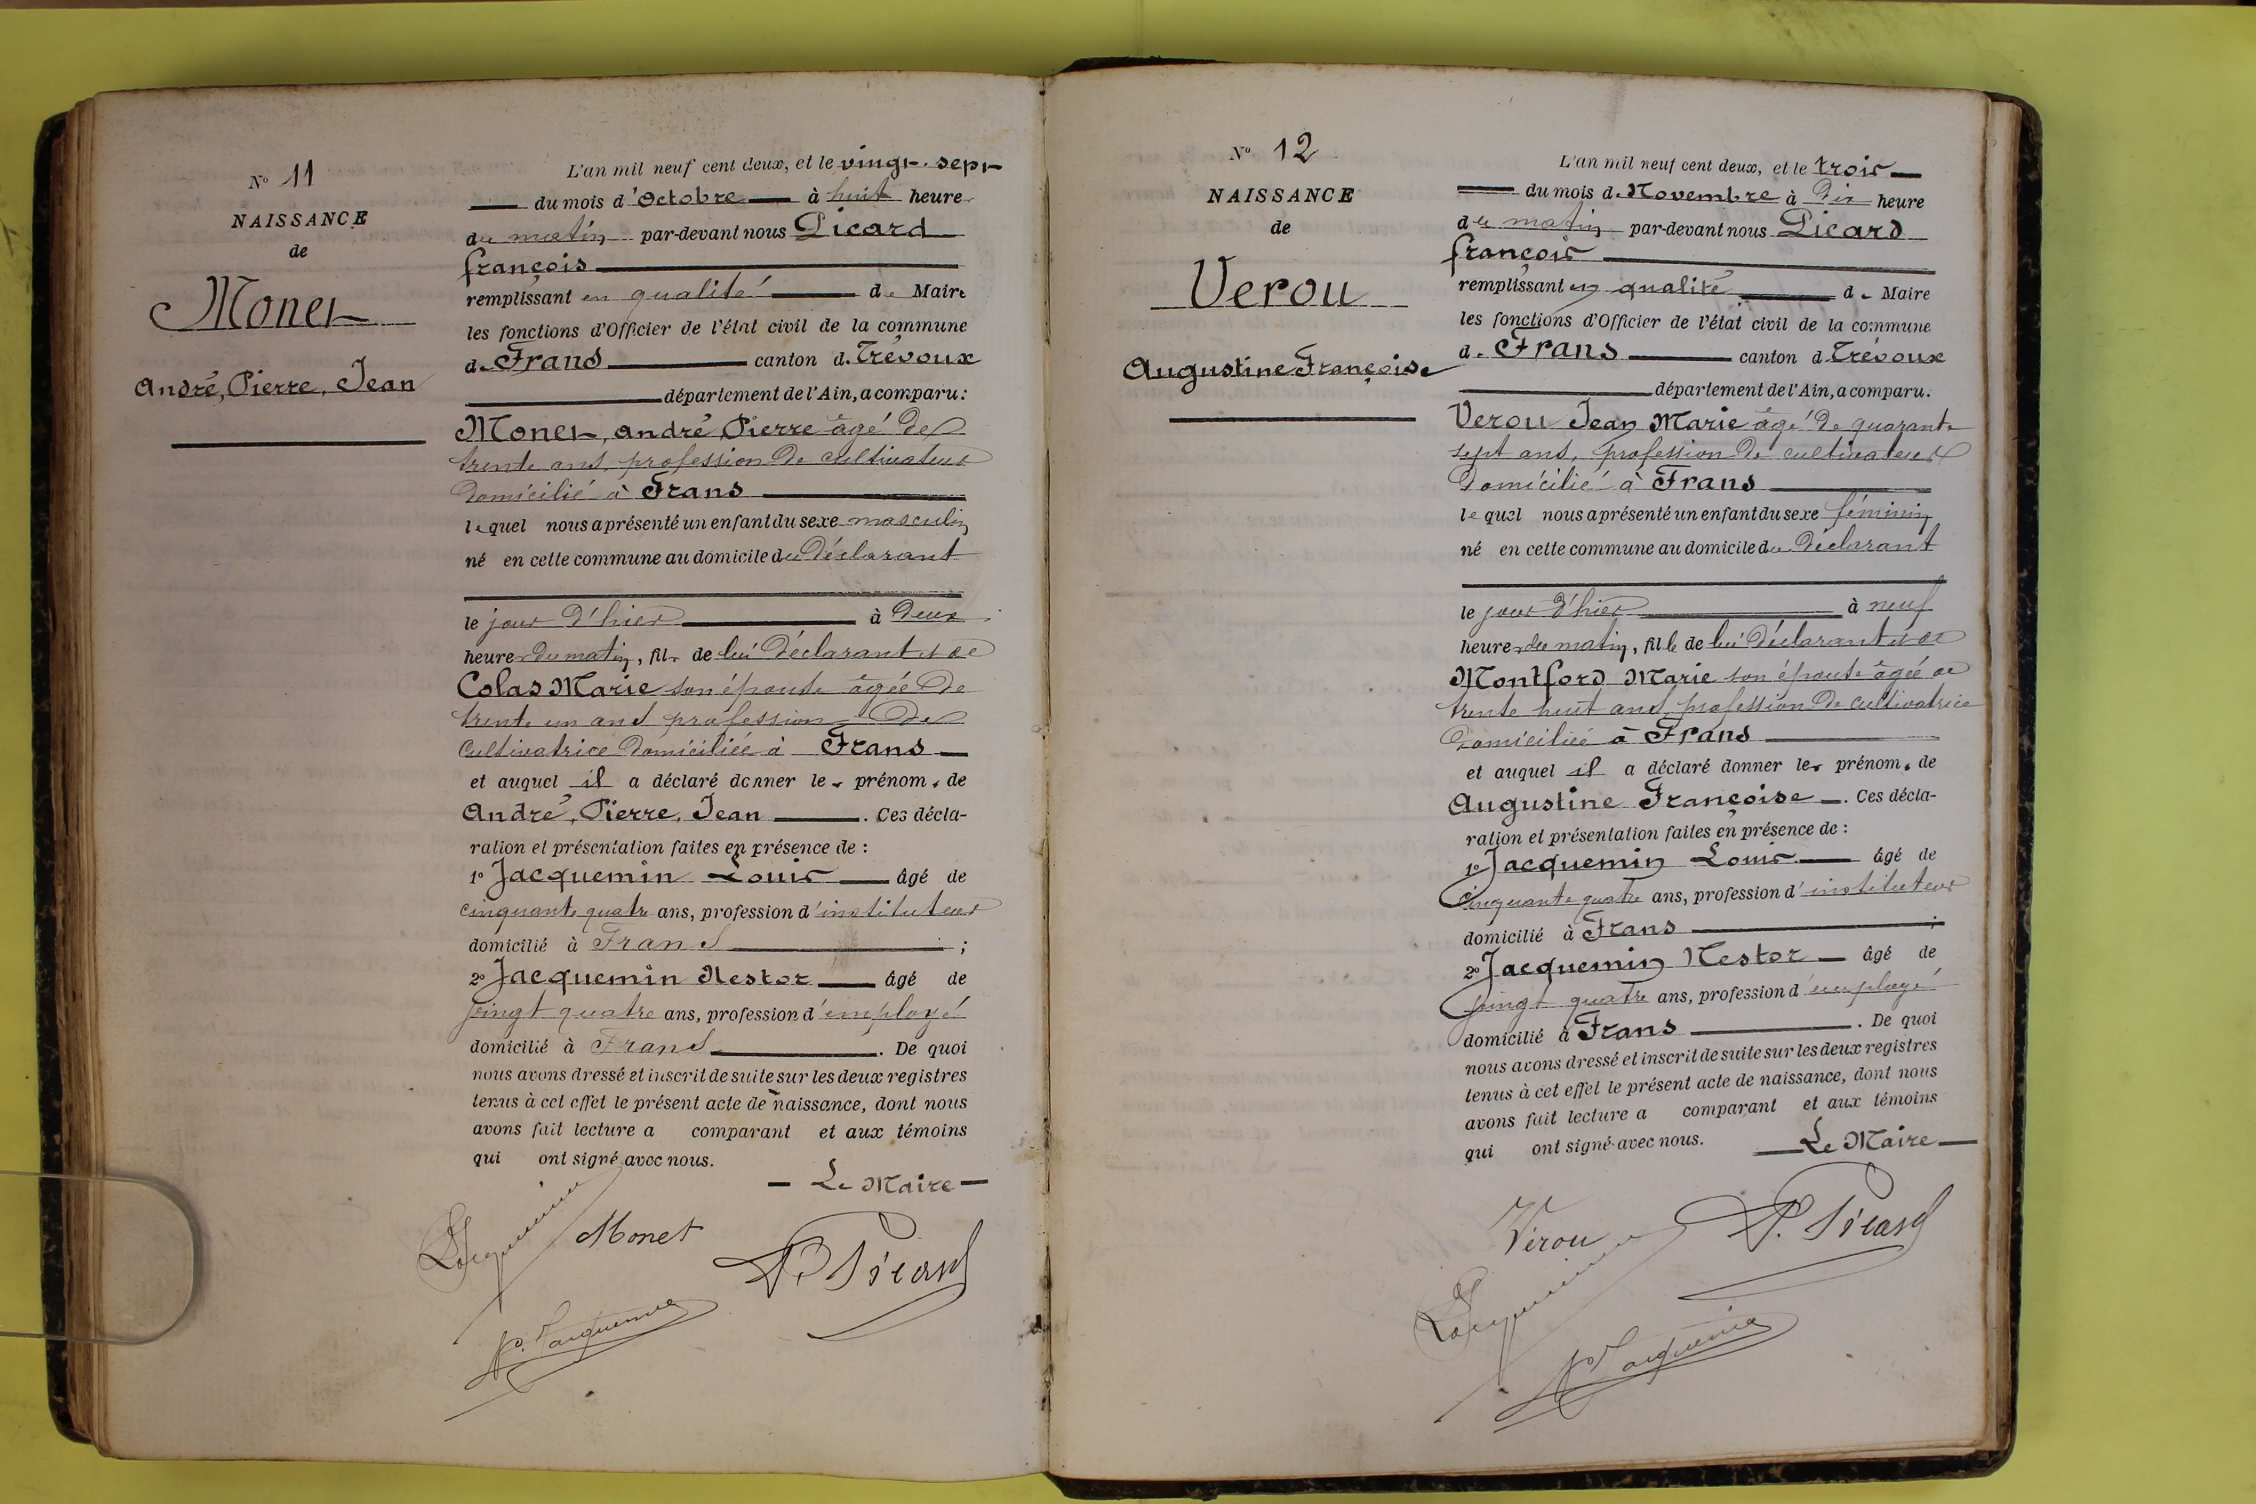 Nº 11
NAISSANCE
de
Monet
André, Pierre, Jean
L'an mil neuf cent deux, et le vingt-sept
du mois d'Octobre à huit heures
du matin par-devant nous Picard
françois
remplissant en qualité de Maire
les fonctions d'Officier de l'état civil de la commune
de Frans canton de Trévoux
département de l'Ain, a comparu:
Monet, andré Pierre âgé de
trente ans, profession de cultivateur
domicilié à Frans
lequel nous a présenté un enfant du sexe masculin
né en cette commune au domicile du déclarant
le jour d'hier à deux
heures du matin, fils de lui déclarant et de
Colas Marie son épouse âgée de
trente un ans profession de
cultivatrice domiciliée à Frans
et auquel il a déclaré donner les prénoms de
André, Pierre, Jean . Ces décla-
ration et présentation faites en présence de :
1º Jacquemin Louis âgé de
cinquante quatre ans, profession d'instituteur
domicilié à Frans ;
2º Jacquemin Nestor âgé de
vingt quatre ans, profession d'employé
domicilié à Frans . De quoi
nous avons dressé et inscrit de suite sur les deux registres
tenus à cet effet le présent acte de naissance, dont nous
avons fait lecture a comparant et aux témoins
qui ont signé avec nous.
Le Maire
Jacquemin
Monet
P. Picard
N. Jacquemin
Nº 12
NAISSANCE
de
Verou
Augustine Françoise
L'an mil neuf cent deux, et le trois
du mois de Novembre à dix heure
du matin par-devant nous Picard
françois
remplissant en qualité de Maire
les fonctions d'Officier de l'état civil de la commune
de Frans canton de Trévoux
département de l'Ain, a comparu:
Verou Jean Marie âgé de quarante
sept ans, profession de cultivateur
domicilié à Frans
lequel nous a présenté un enfant du sexe féminin
né en cette commune au domicile du déclarant
le jour d'hier à neuf
heures du matin, fille de lui déclarant et de
Montford Marie son épouse âgée de
trente huit ans, profession de cultivatrice
domiciliée à Frans
et auquel il a déclaré donner les prénoms de
Augustine Françoise . Ces décla-
ration et présentation faites en présence de :
1º Jacquemin Louis âgé de
cinquante quatre ans, profession d'instituteur
domicilié à Frans ;
2º Jacquemin Nestor âgé de
vingt quatre ans, profession d'employé
domicilié à Frans . De quoi
nous avons dressé et inscrit de suite sur les deux registres
tenus à cet effet le présent acte de naissance, dont nous
avons fait lecture a comparant et aux témoins
qui ont signé avec nous.
Le Maire
Vérou
P. Picard
Jacquemin
N. Jacquemin